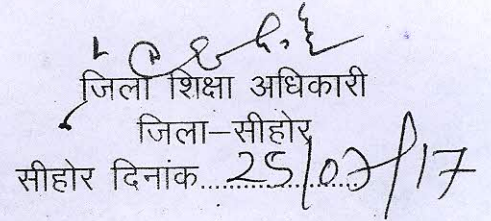 जिला शिक्षा अधिकारी
जिला–सीहोर
सीहोर दिनांक....25/07/17